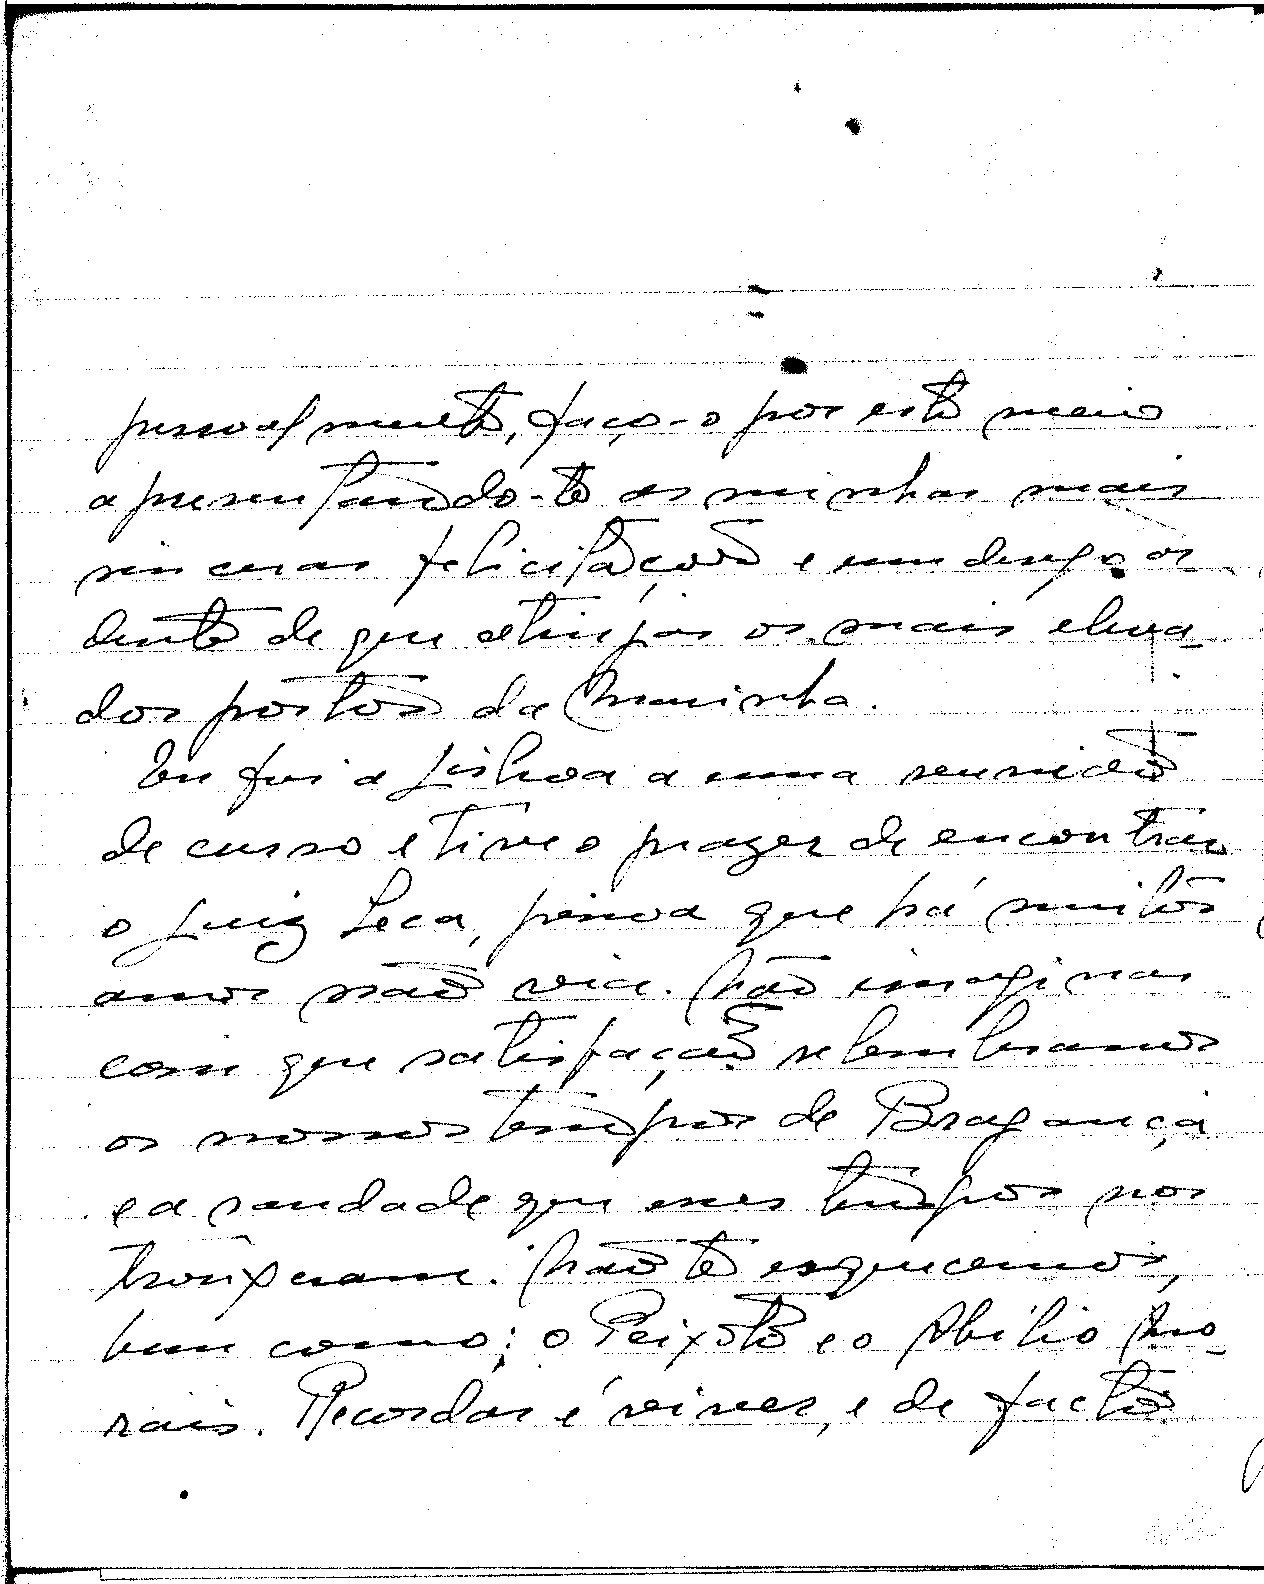 pessoalmente, faço-o por este meio
apresentando-te as minhas mais
sinceras felicitações e um desejo ar
dente de que atinjas os mais eleva-
dos postos da Marinha.
Eu fui a Lisboa a uma reunião
de curso e tive o prazer de encontrar
o Luiz Leca, pessoa que há muitos
anos não via. Não imaginas
com que satisfação relembramos
os nossos tempos de Bragança
e a saudade que esses tempos nos
trouxeram. Não te esquecemos,
bem como; o Peixoto e o Abilio Mo-
rais. Recordar é viver, e de facto